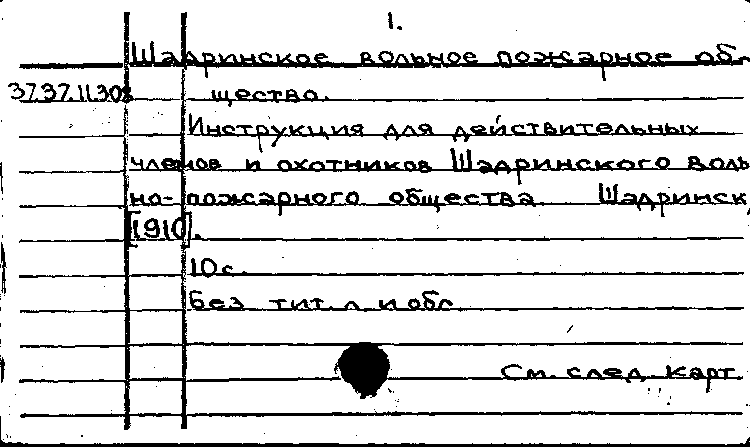 1.
Шадринское вольное пожарное об-
37.37.11.308 щество.
Инструкция для действительных
членов и охотников Шадринского воль
но-пожарного общества. Шадринск,
[1910].
10 с.
Без тит. л. и обл.
См. след. карт.